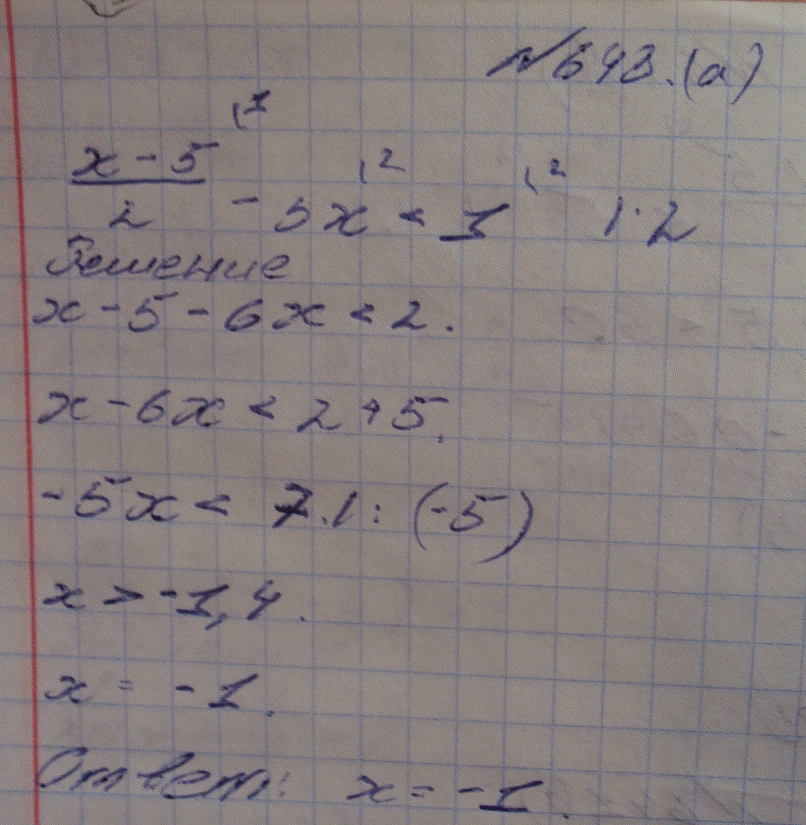 №643.(а)
x - 5 \1
/2 - 3x \2 < 1 \2 |·2
Решение
x - 5 - 6x < 2.
x - 6x < 2 + 5.
-5x < 7. |: (-5)
x > -1,4.
x = -1.
Ответ: x = -1.